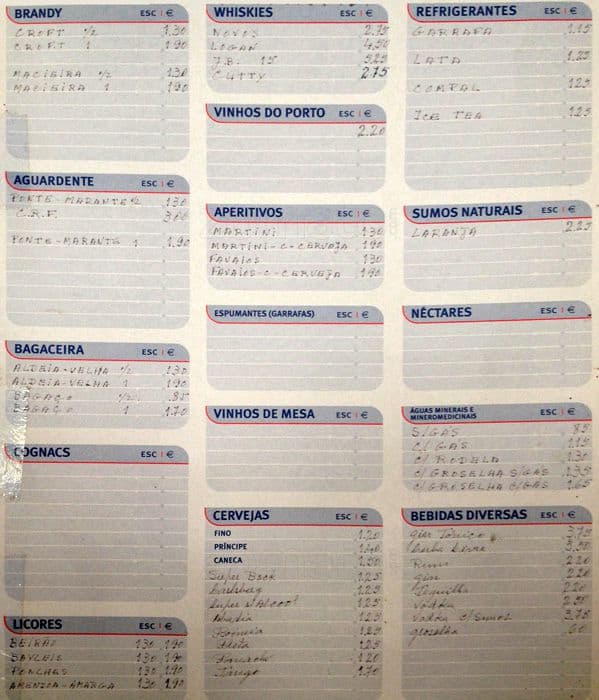 BRANDY ESC | €
CROFT 1/2 1.30
CROFT 1 1.90
MACIEIRA 1/2 1.30
MACIEIRA 1 1.90
AGUARDENTE ESC | €
PONTE-MARANTE 1/2 1.30
C.R.F. 3.00
PONTE-MARANTE 1 1.90
BAGACEIRA ESC | €
ALDEIA-VELHA 1/2 1.30
ALDEIA-VELHA 1 1.90
BAGAÇO 1/2 .85
BAGAÇO 1 1.70
COGNACS ESC | €
LICORES ESC | €
BEIRÃO 1.30 1.90
BAYLEIS 1.30 1.90
PONCHES 1.30 1.90
AMENDOA-AMARGA 1.30 1.90
WHISKIES ESC | €
NOVOS 2.75
LOGAN 4.50
J.B. 15 5.25
CUTTY 2.75
VINHOS DO PORTO ESC | €
2.20
APERITIVOS ESC | €
MARTINI 1.30
MARTINI-C-CERVEJA 1.90
FAVAIOS 1.30
FAVAIOS-C-CERVEJA 1.90
ESPUMANTES (GARRAFAS) ESC | €
VINHOS DE MESA ESC | €
CERVEJAS ESC | €
FINO 1.20
PRÍNCIPE
CANECA
Super Bock 1.25
Carlsberg 1.25
Super s/Alcool 1.25
Abadia 1.25
Bohemia 1.25
1.25
Panaché 1.20
Tango 1.70
REFRIGERANTES ESC | €
GARRAFA 1.15
LATA 1.25
COMPAL 1.25
ICE TEA 1.25
SUMOS NATURAIS ESC | €
LARANJA 2.25
NÉCTARES ESC | €
ÁGUAS MINERAIS E
MINEROMEDICINAIS ESC | €
S/GÁS .85
C/GÁS 1.15
C/ RODELA 1.30
C/GROSELHA S/GÁS 1.35
C/GROSELHA C/GÁS 1.65
BEBIDAS DIVERSAS ESC | €
gin Tónico 3.75
cuba livre
Rum 2.20
gin 2.20
Tequilha 2.20
Vodka 2.50
Vodka c/Sumos 3.75
groselha .60